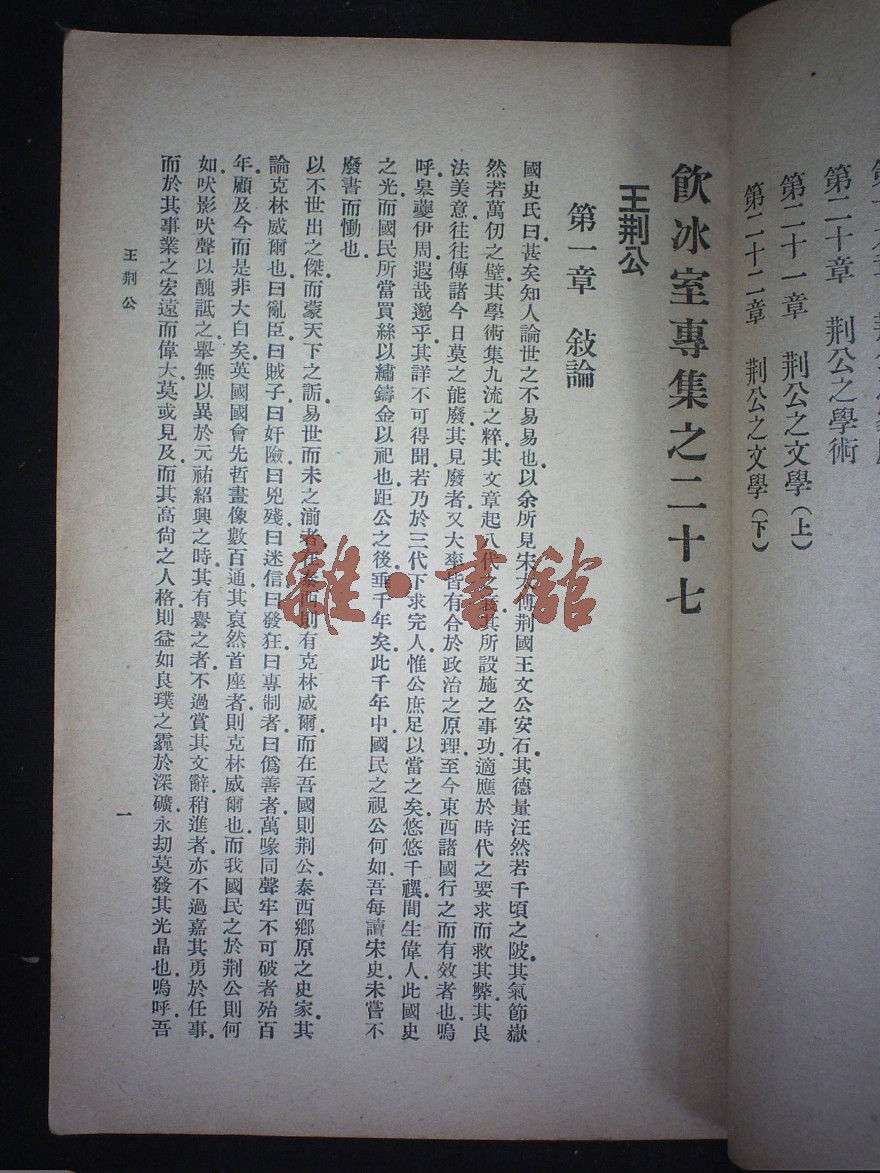 第二十章　荊公之學術
第二十一章　荊公之文學（上）
第二十二章　荊公之文學（下）
飲冰室專集之二十七
王荊公
第一章　敍論
國史氏曰．甚矣知人論世之不易易也．以余所見宋太傅荊國王文公安石．其德量汪然若千頃之陂．其氣節嶽
然若萬仞之壁．其學術集九流之粹．其文章起八代之衰．其所設施之事功．適應於時代之要求而救其弊．其良
法美意．往往傳諸今日莫之能廢．其見廢者．又大率皆有合於政治之原理．至今東西諸國行之而有效者也．嗚
呼．皋夔伊周．遐哉邈乎．其詳不可得聞．若乃於三代下求完人．惟公庶足以當之矣．悠悠千禩．間生偉人．此國史
之光．而國民所當買絲以繡．鑄金以祀也．距公之後．垂千年矣．此千年中．國民之視公何如．吾每讀宋史．未嘗不
廢書而慟也．
以不世出之傑．而蒙天下之詬．易世而未之湔者．在泰西則有克林威爾．而在吾國則荊公．泰西鄉原之史家．其
論克林威爾也．曰亂臣．曰賊子．曰奸險．曰兇殘．曰迷信．曰發狂．曰專制者．曰僞善者．萬喙同聲．牢不可破者殆百
年．顧及今而是非大白矣．英國國會先哲畫像數百通．其裒然首座者．則克林威爾也．而我國民之於荊公則何
如．吠影吠聲以醜詆之．舉無以異於元祐紹興之時．其有譽之者．不過賞其文辭．稍進者．亦不過嘉其勇於任事．
而於其事業之宏遠而偉大．莫或見及．而其高尙之人格．則益如良璞之霾於深礦．永劫莫發其光晶也．嗚呼．吾
王荊公
一
雜·書館